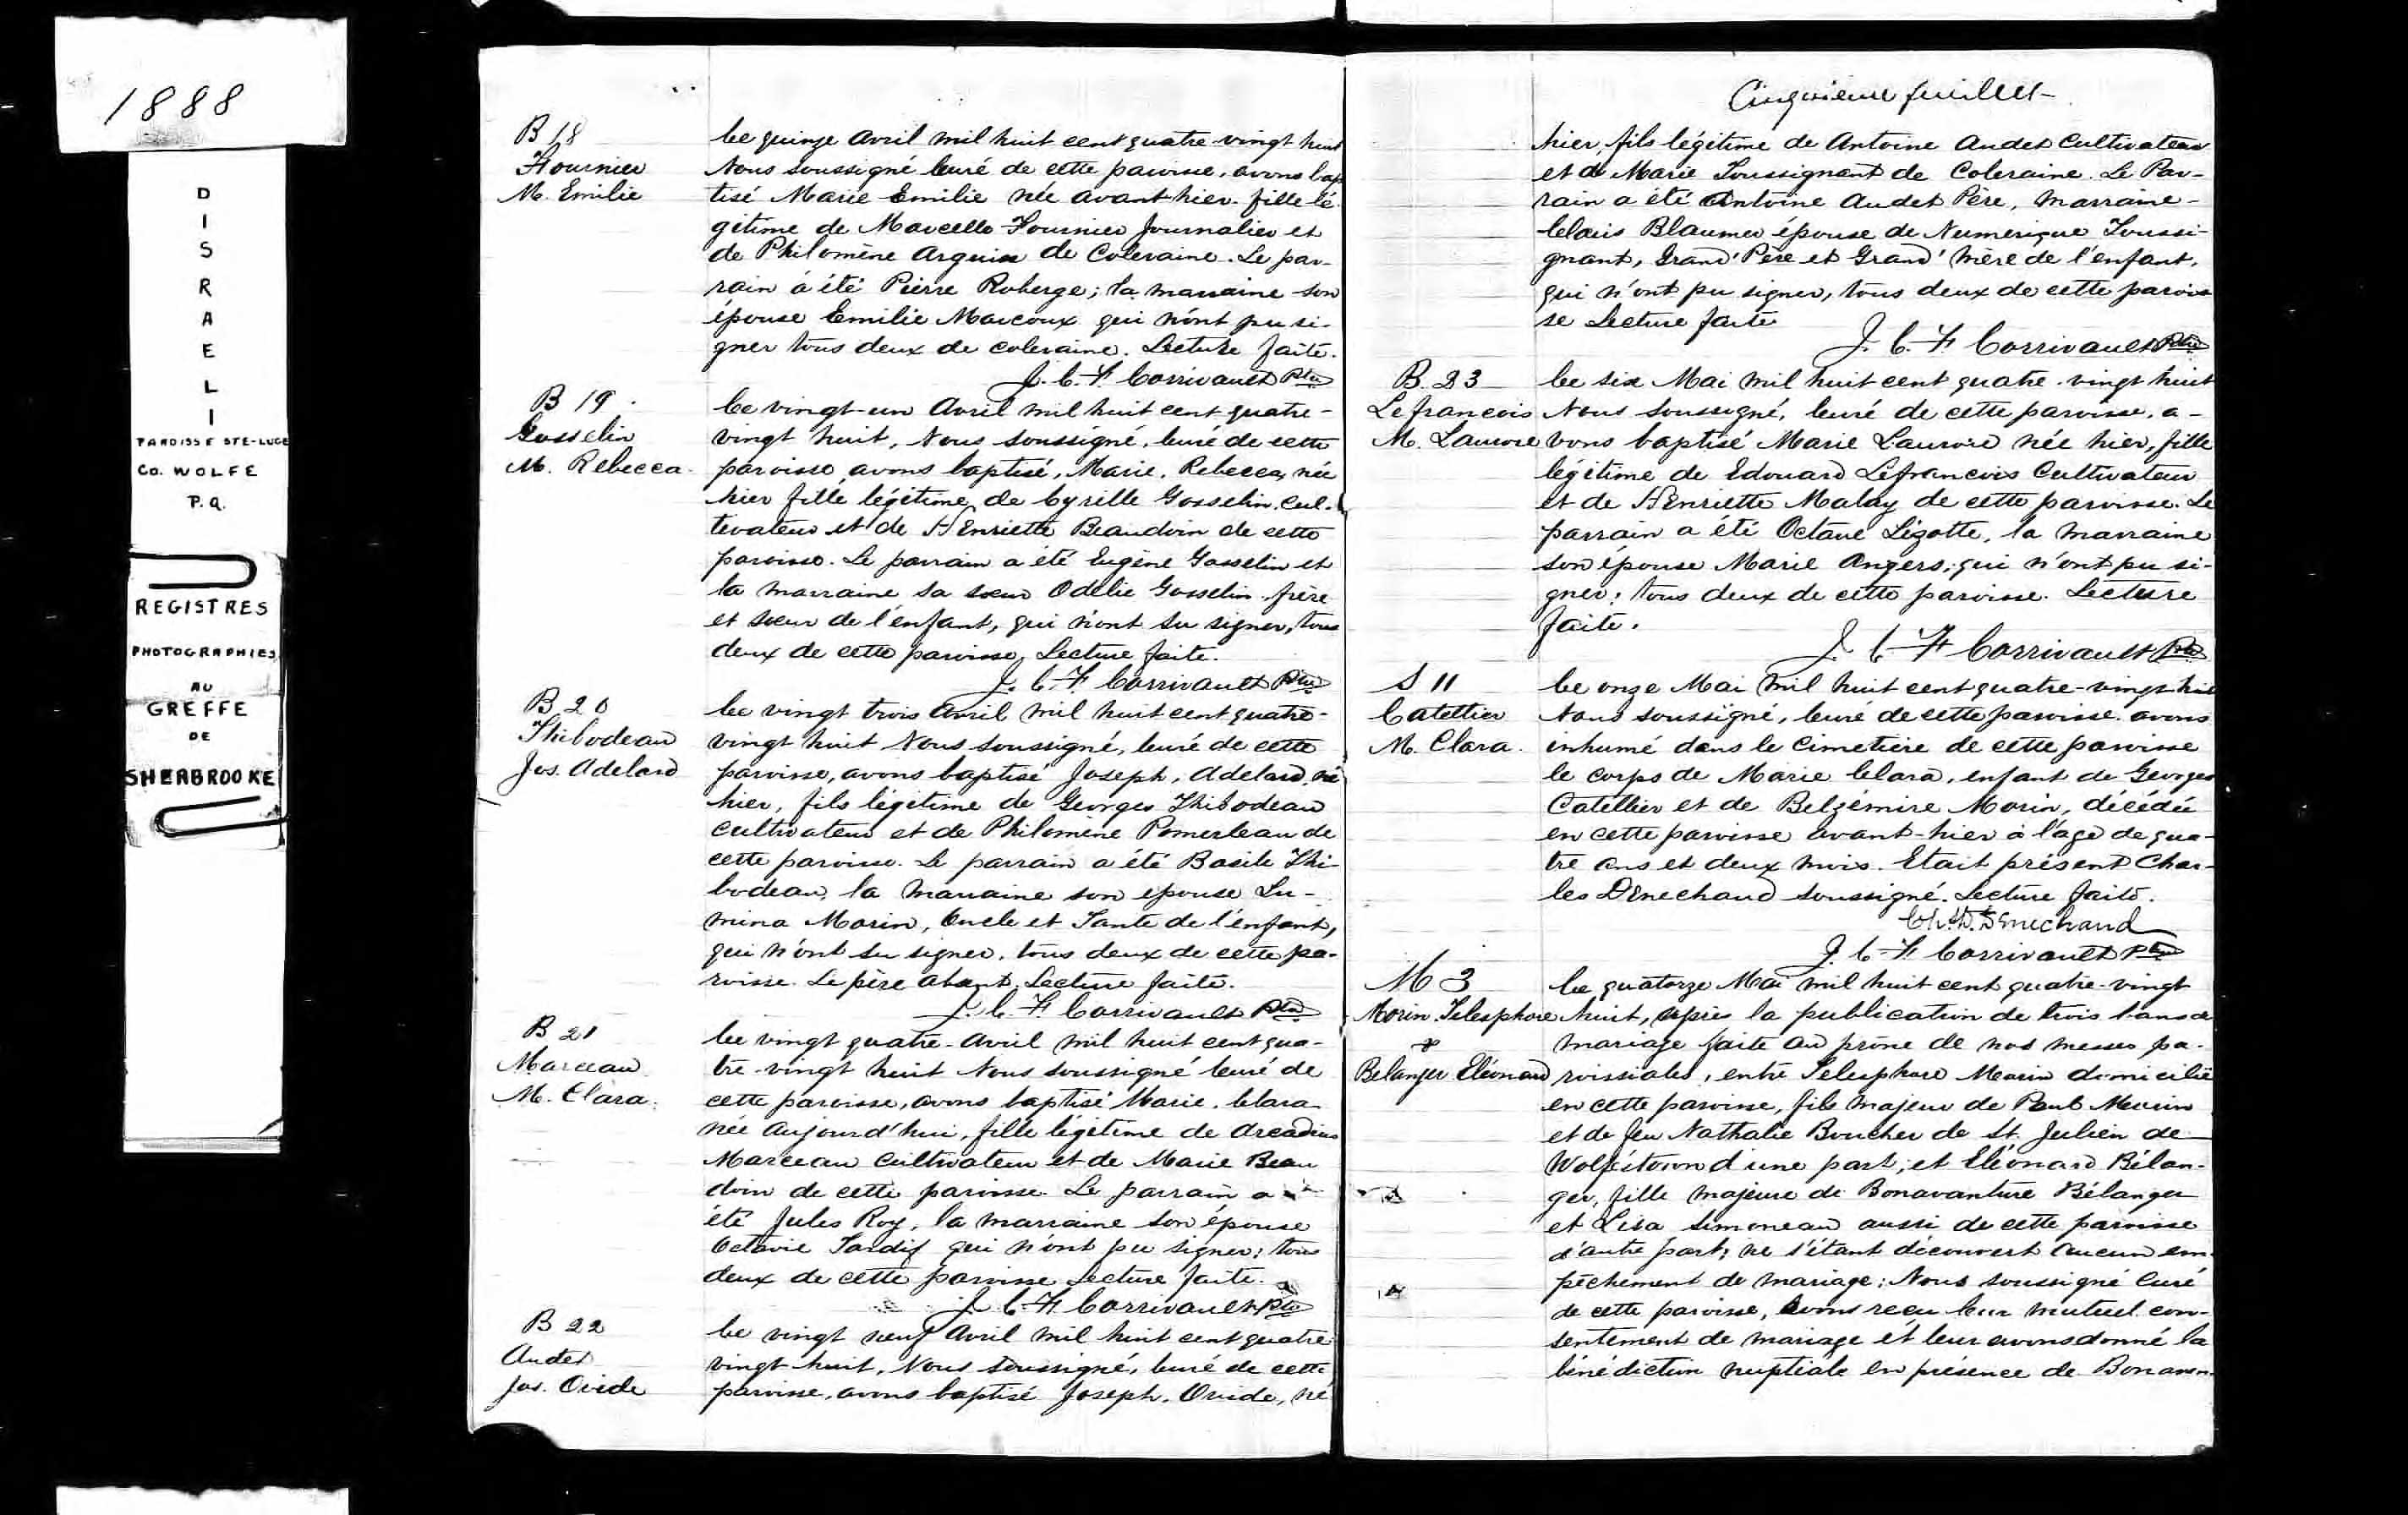 1888
DISRAELI
PAROISSE STE-LUCE
CO. WOLFE
P.Q.
REGISTRES
PHOTOGRAPHIES
AU
GREFFE
DE
SHERBROOKE
B 18
Fournier
M. Emilie
Ce quinze Avril mil huit cent quatre-vingt huit
Nous soussigné Curé de cette paroisse, avons bap
tisé Marie Emilie née avant hier. fille lé
gitime de Marcelle Fournier Journalier et
de Philomène Arguin de Coleraine. Le par-
rain a été Pierre Roberge; la marraine son
épouse Emilie Marcoux qui n'ont pu si-
gner tous deux de coleraine. Lecture faite.
J. C. F. Corrivault Ptre
B 19
Gosselin
M. Rebecca
Ce vingt-un Avril mil huit cent quatre-
vingt huit, Nous soussigné, Curé de cette
paroisse avons baptisé, Marie, Rebecca, née
hier fille légitime de Cyrille Gosselin, Cul-
tivateur et de Henriette Beaudoin de cette
paroisse. Le parrain a été Eugène Gosselin et
la marraine sa sœur Odélie Gosselin frère
et sœur de l'enfant, qui n'ont su signer, tous
deux de cette paroisse, Lecture faite.
J. C. F. Corrivault Ptre
B 20
Thibodeau
Jos. Adelard
Ce vingt trois Avril mil huit cent quatre-
vingt huit Nous soussigné, Curé de cette
paroisse, avons baptisé Joseph, Adelard, né
hier, fils légitime de Georges Thibodeau
cultivateur et de Philomène Pomerleau de
cette paroisse. Le parrain a été Basile Thi-
bodeau, la marraine son epouse Lu-
mina Morin, Oncle et Tante de l'enfant,
qui n'ont su signer, tous deux de cette pa-
roisse. Le père absent. Lecture faite.
J. C. F. Corrivault Ptre
B 21
Marceau
M. Clara
Ce vingt quatre-Avril mil huit cent qua-
tre-vingt huit Nous soussigné Curé de
cette paroisse, avons baptisé Marie, Clara
née Aujourd'hui, fille légitime de Arcadius
Marceau Cultivateur et de Marie Beau
doin de cette paroisse. Le parrain a
été Jules Roy, la marraine son épouse
Octavie Tardif qui n'ont pu signer; tous
deux de cette paroisse Lecture faite.
J. C. F. Corrivault Ptre
B 22
Audet
Jos. Ovide
Ce vingt neuf Avril mil huit cent quatre
vingt huit, Nous soussigné, Curé de cette
paroisse, avons baptisé Joseph, Ovide, né
Cinquième feuillet
hier, fils légitime de Antoine Audet Cultivateur
et de Marie Toussignant de Coleraine. Le Par-
rain a été Antoine Audet Père, Marraine-
Blaumer épouse de Numerique Toussi-
gnant, Grand'Père et Grand'Mère de l'enfant,
qui n'ont pu signer, tous deux de cette parois
se Lecture faite
J. C. F. Corrivault Ptre
B. 23
Lefrancois
M. Laurore
Ce six Mai mil huit cent quatre-vingt huit
Nous soussigné, Curé de cette paroisse, a-
vons baptisé Marie Laurore née hier, fille
légitime de Edouard Lefrancois Cultivateur
et de Henriette Malay de cette paroisse. Le
parrain a été Octave Lizotte, la marraine
son épouse Marie Angers, qui n'ont pu si-
gner; tous deux de cette paroisse. Lecture
faite.
J. C. F. Corrivault Ptre
S 11
Catellier
M. Clara
Ce onze Mai mil huit cent quatre-vingt-huit
Nous soussigné, Curé de cette paroisse avons
inhumé dans le Cimetière de cette paroisse
le corps de Marie Clara, enfant de Georges
Catellier et de Belzémire Morin, décédée
en cette paroisse avant-hier à l'age de qua-
tre ans et deux mois. Etait présent Char-
les Dénechaud soussigné. Lecture faite.
Ch. D. Dénechaud
J. C. F. Corrivault Ptre
M 3
Morin Telesphore
&
Belanger Eléonard
Ce quatorze Mai mil huit cent quatre-vingt
huit, après la publication de trois bans de
mariage faite au prône de nos messes pa-
roissiales, entre Telesphore Morin domicilié
en cette paroisse, fils majeur de Paul Morin
et de feu Nathalie Boucher de St. Julien de
Wolfestown d'une part; et Eléonard Bélan-
ger, fille majeure de Bonavanture Bélanger
et Lisa Simoneau aussi de cette paroisse
d'autre part; ne s'étant découvert aucun em-
pêchement de mariage; Nous soussigné Curé
de cette paroisse, avons reçu leur mutuel con-
sentement de mariage et leur avons donné la
bénédiction nuptiale en présence de Bonaven-